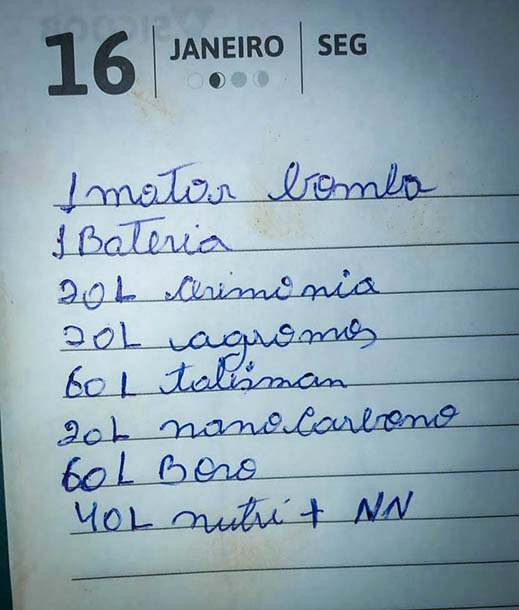 16 JANEIRO SEG
1 motor bomba
1 Bateria
20L cerimonia
20L agromos
60L talisman
20L nanocarbono
60L Boro
40L nutri + NN